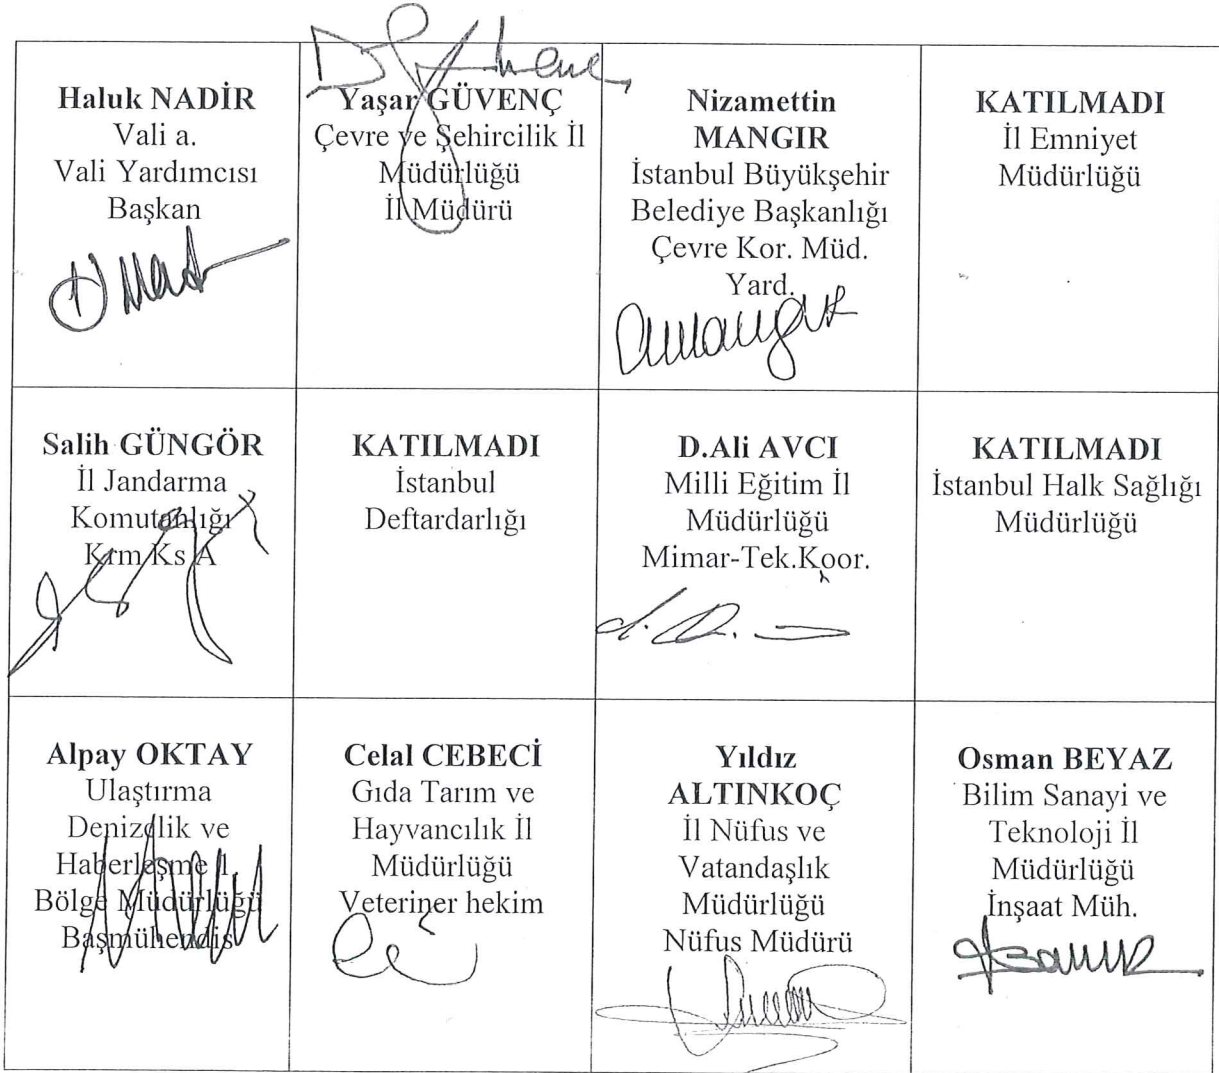 Haluk NADİR
Vali a.
Vali Yardımcısı
Başkan
Yaşar GÜVENÇ
Çevre ve Şehircilik İl
Müdürlüğü
İl Müdürü
Nizamettin
MANGIR
İstanbul Büyükşehir
Belediye Başkanlığı
Çevre Kor. Müd.
Yard.
KATILMADI
İl Emniyet
Müdürlüğü
Salih GÜNGÖR
İl Jandarma
Komutanlığı
Krm Ks A
KATILMADI
İstanbul
Deftardarlığı
D.Ali AVCI
Milli Eğitim İl
Müdürlüğü
Mimar-Tek.Koor.
KATILMADI
İstanbul Halk Sağlığı
Müdürlüğü
Alpay OKTAY
Ulaştırma
Denizclik ve
Haberleşme 1.
Bölge Müdürlüğü
Başmühendis
Celal CEBECİ
Gıda Tarım ve
Hayvancılık İl
Müdürlüğü
Veteriner hekim
Yıldız
ALTINKOÇ
İl Nüfus ve
Vatandaşlık
Müdürlüğü
Nüfus Müdürü
Osman BEYAZ
Bilim Sanayi ve
Teknoloji İl
Müdürlüğü
İnşaat Müh.